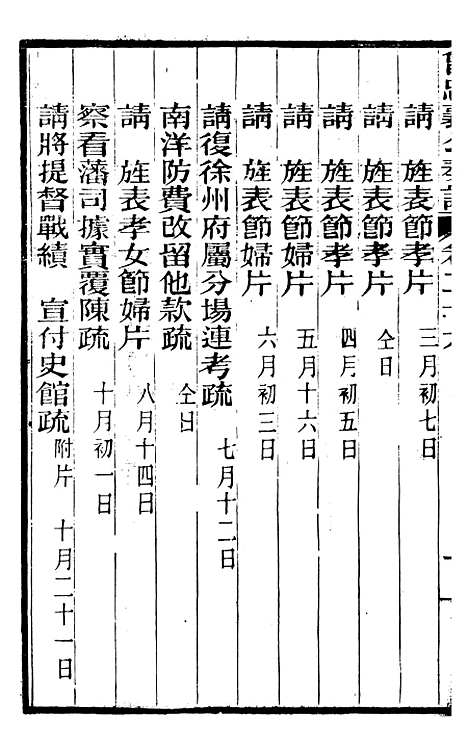 請　旌表節孝片　三月初七日
請　旌表節孝片　仝日
請　旌表節孝片　四月初五日
請　旌表節婦片　五月十六日
請　旌表節婦片　六月初三日
請復徐州府屬分場連考疏　七月十二日
南洋防費改留他款疏　仝日
請　旌表孝女節婦片　八月十四日
察看藩司據實覆陳疏　十月初一日
請將提督戰績　宣付史館疏　附片　十月二十一日